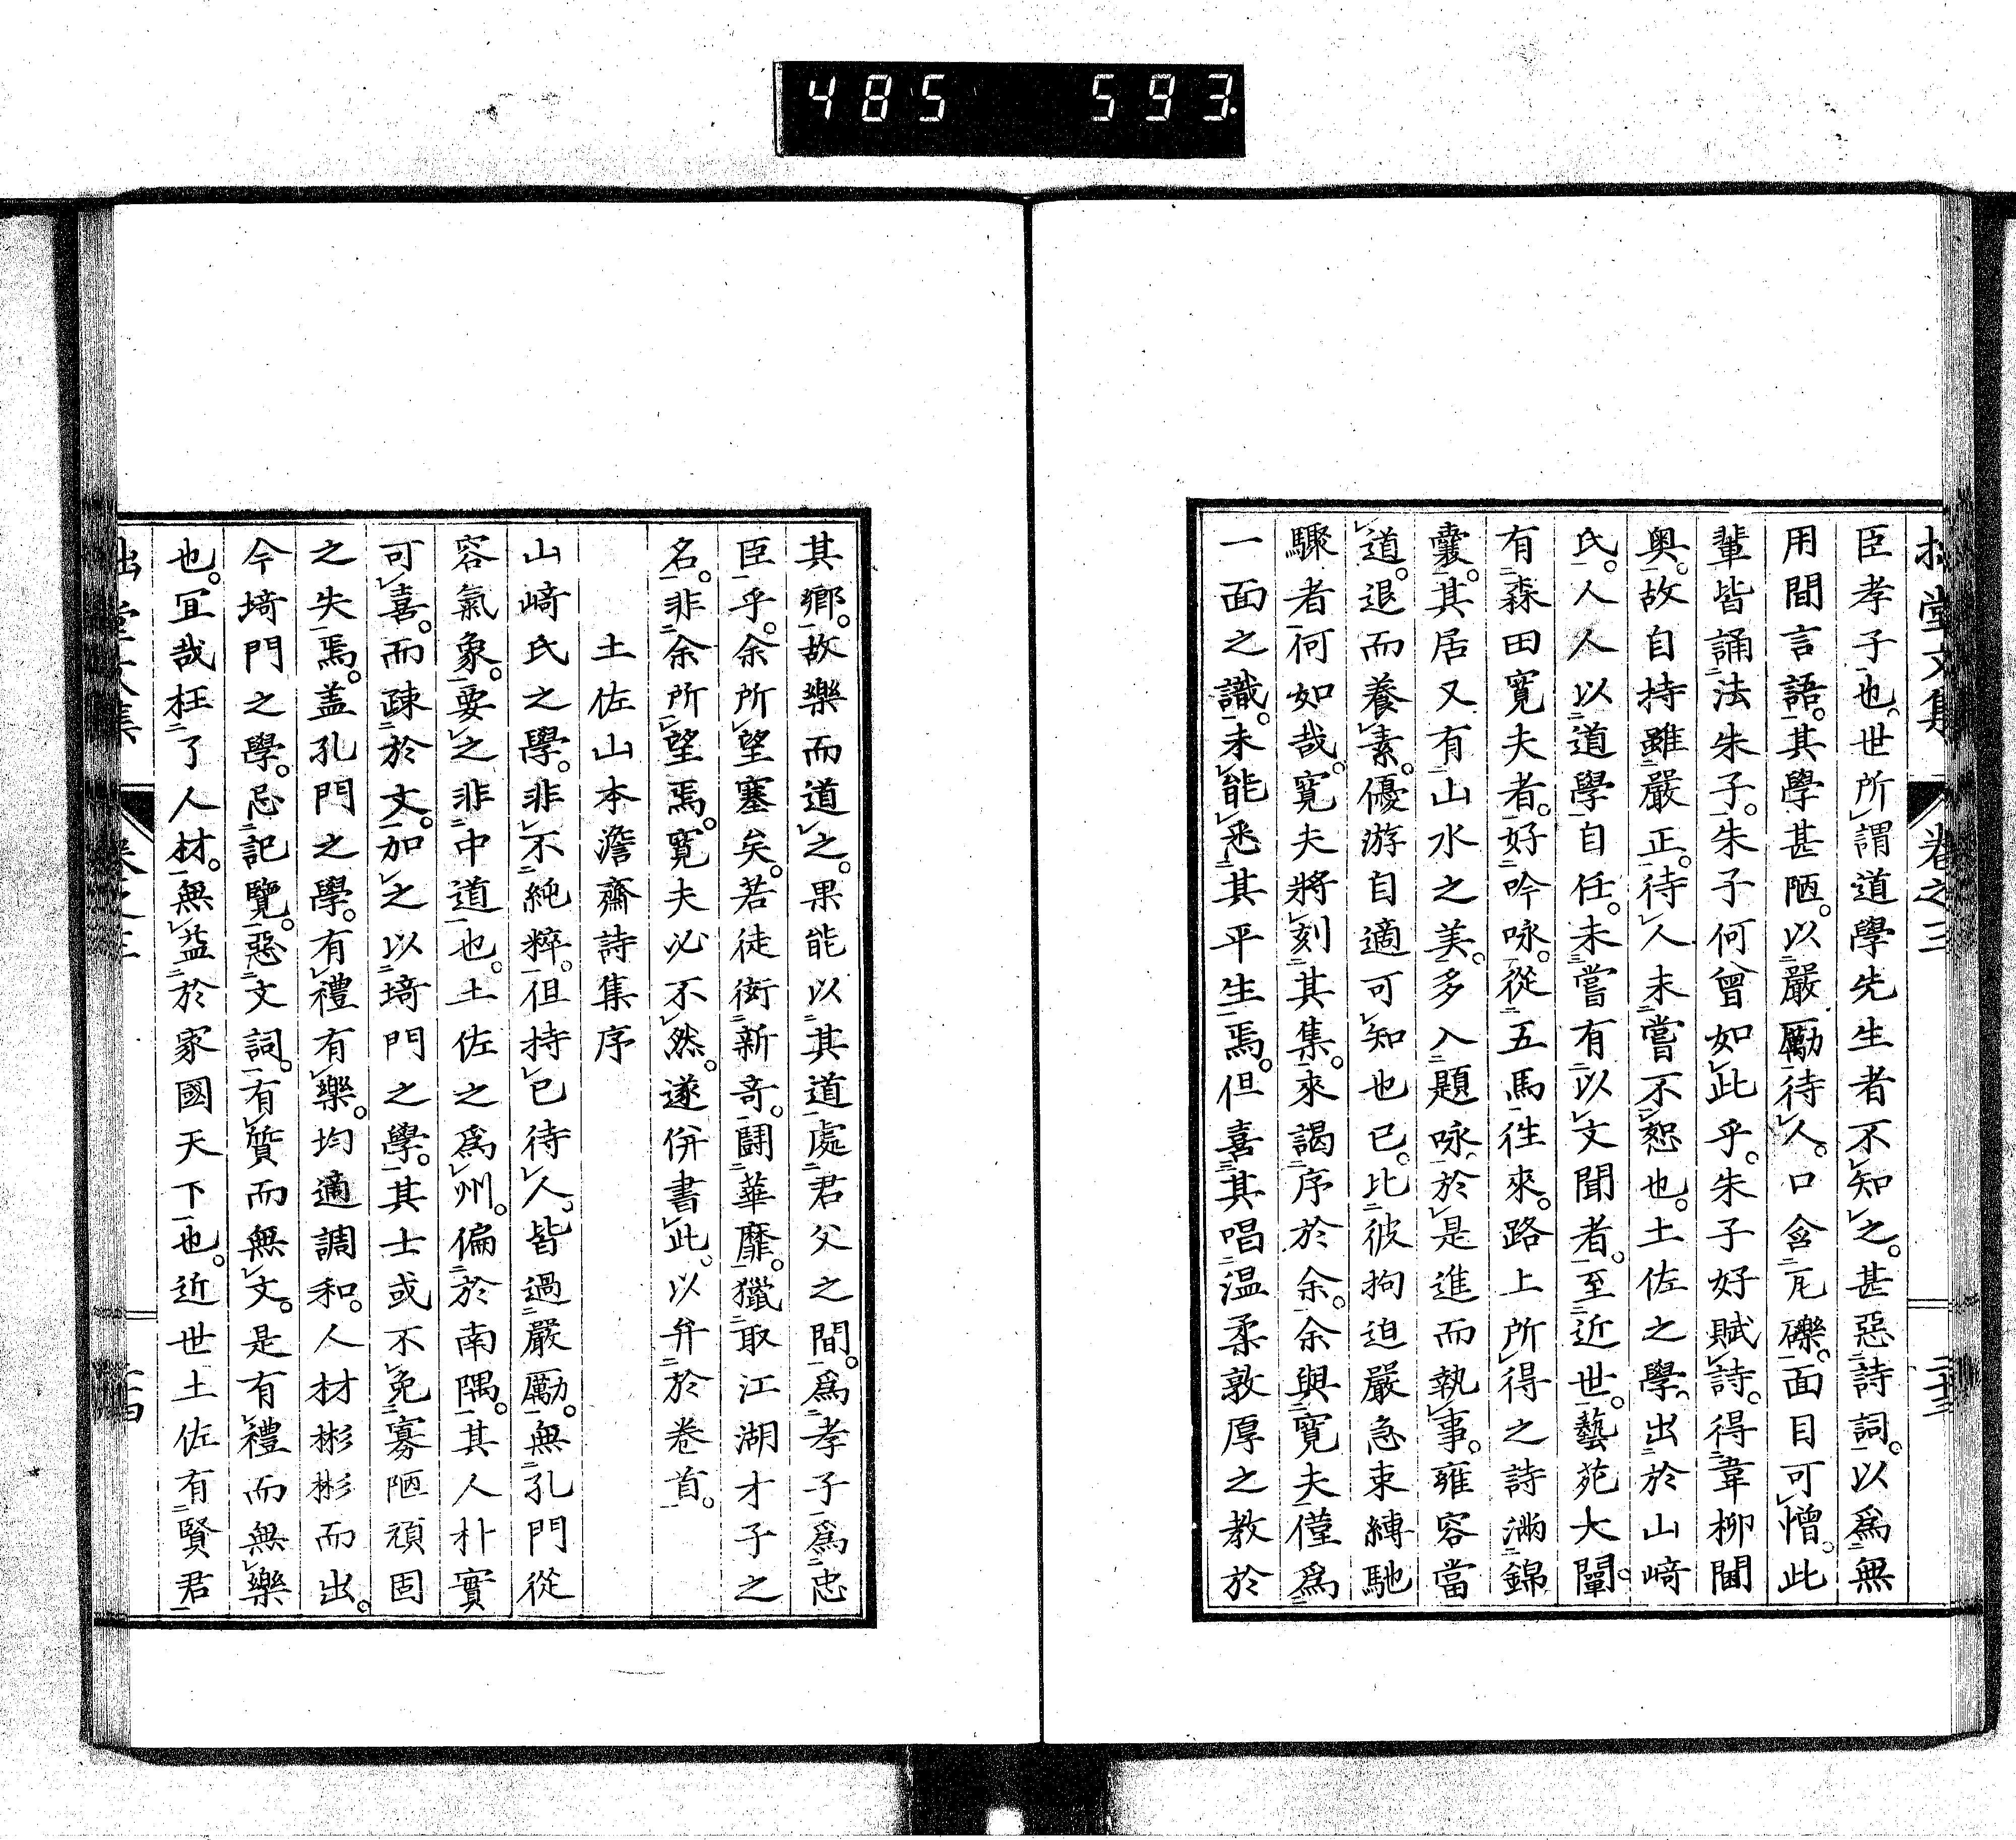 485 593.
拙堂文集 卷之三 二十三
臣孝子也。世所謂道學先生者不知之。甚惡詩詞。以爲無
用閒言語。其學甚陋。以嚴勵待人。口含瓦礫。面目可憎。此
輩皆誦法朱子。朱子何曾如此乎。朱子好賦詩。得韋柳閫
奥。故自持雖嚴正。待人未嘗不恕也。土佐之學。出於山﨑
氏。人人以道學自任。未嘗有以文聞者。至近世。藝苑大闡。
有森田寛夫者。好吟咏。從五馬徃來。路上所得之詩滿錦
囊。其居又有山水之美。多入題咏。於是進而執事。雍容當
道。退而養素。優游自適可知也已。比彼拘迫嚴急束縛馳
驟者何如哉。寛夫將刻其集。來謁序於余。余與寛夫僅爲
一面之識。未能悉其平生焉。但喜其唱温柔敦厚之教於
其鄉。故樂而道之。果能以其道處君父之間。爲孝子爲忠
臣乎。余所望塞矣。若徒衒新奇。鬪華靡。獵取江湖才子之
名。非余所望焉。寛夫必不然。遂併書此。以弁於卷首。
土佐山本澹齋詩集序
山﨑氏之學。非不純粹。但持已待人。皆過嚴勵。無孔門從
容氣象。要之非中道也。土佐之爲州。偏於南隅。其人朴實
可喜。而疎於文。加之以﨑門之學。其士或不免寡陋頑固
之失焉。盖孔門之學。有禮有樂。均適調和。人材彬彬而出。
今﨑門之學。忌記覽。惡文詞。有質而無文。是有禮而無樂
也。冝哉枉了人材。無益於家國天下也。近世土佐有賢君
拙堂文集 卷之三 二十四